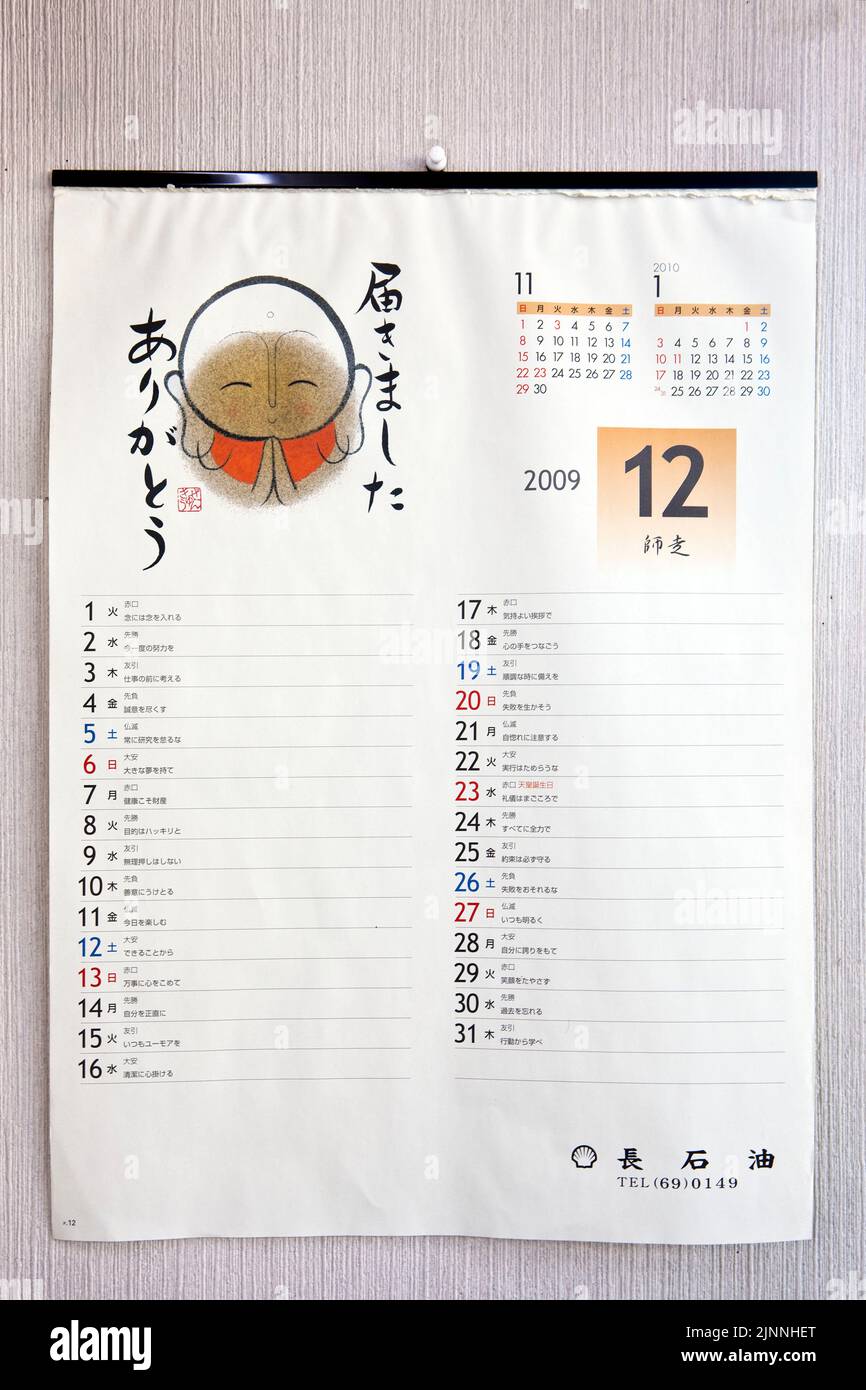 届きました
ありがとう
ぜんきゅう
11
日 月 火 水 木 金 土
1 2 3 4 5 6 7
8 9 10 11 12 13 14
15 16 17 18 19 20 21
22 23 24 25 26 27 28
29 30
2010
1
日 月 火 水 木 金 土
1 2
3 4 5 6 7 8 9
10 11 12 13 14 15 16
17 18 19 20 21 22 23
24/31 25 26 27 28 29 30
2009
12
師走
1 火 赤口
念には念を入れる
2 水 先勝
今一度の努力を
3 木 友引
仕事の前に考える
4 金 先負
誠意を尽くす
5 土 仏滅
常に研究を怠るな
6 日 大安
大きな夢を持て
7 月 赤口
健康こそ財産
8 火 先勝
目的はハッキリと
9 水 友引
無理押しはしない
10 木 先負
善意にうけとる
11 金 仏滅
今日を楽しむ
12 土 大安
できることから
13 日 赤口
万事に心をこめて
14 月 先勝
自分を正直に
15 火 友引
いつもユーモアを
16 水 大安
清潔に心掛ける
17 木 赤口
気持よい挨拶で
18 金 先勝
心の手をつなごう
19 土 友引
順調な時に備えを
20 日 先負
失敗を生かそう
21 月 仏滅
自惚れに注意する
22 火 大安
実行はためらうな
23 水 赤口 天皇誕生日
礼儀はまごころで
24 木 先勝
すべてに全力で
25 金 友引
約束は必ず守る
26 土 先負
失敗をおそれるな
27 日 仏滅
いつも明るく
28 月 大安
自分に誇りをもて
29 火 赤口
笑顔をたやさず
30 水 先勝
過去を忘れる
31 木 友引
行動から学べ
長石油
TEL(69)0149
×.12
alamy
a
alamy
Image ID: 2JNNHET
www.alamy.com